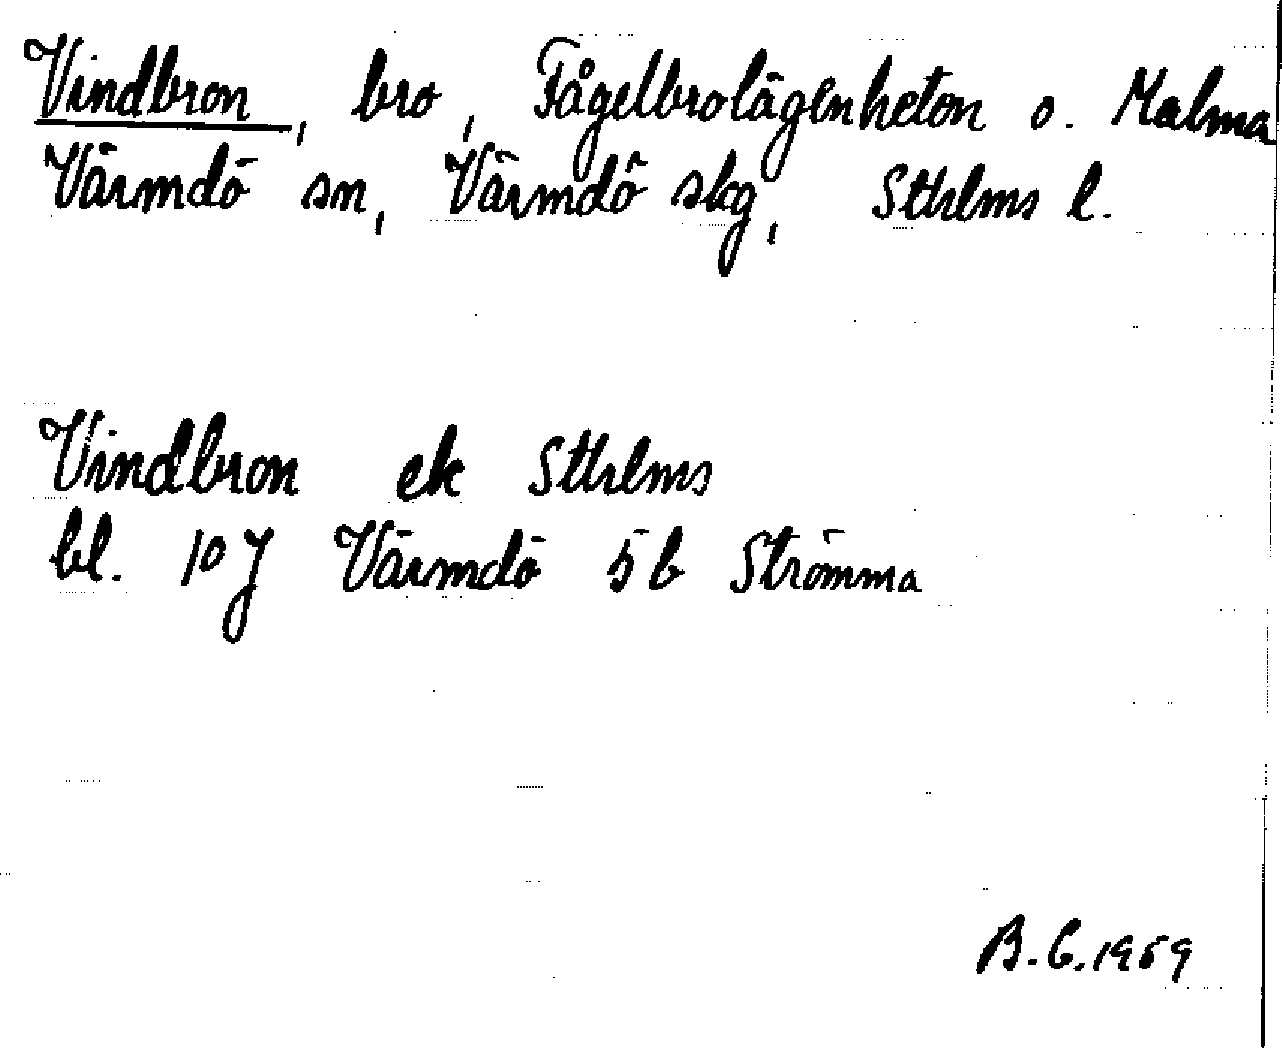 Vindbron, bro, Fågelbrolägenheten o. Malma
Värmdö sn, Värmdö skg, Sthlms l.
Vindbron ek Sthlms
bl. 10J Värmdö 5b Strömma
B.G.1959